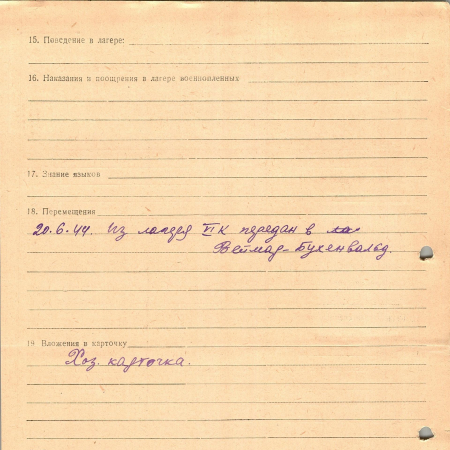 15. Поведение в лагере:
16. Наказания и поощрения в лагере военнопленных
17. Знание языков
18. Перемещения
20.6.44. Из лагеря VI К передан в ла-
Веймар-Бухенвальд.
19 Вложения в карточку
Хоз. карточка.